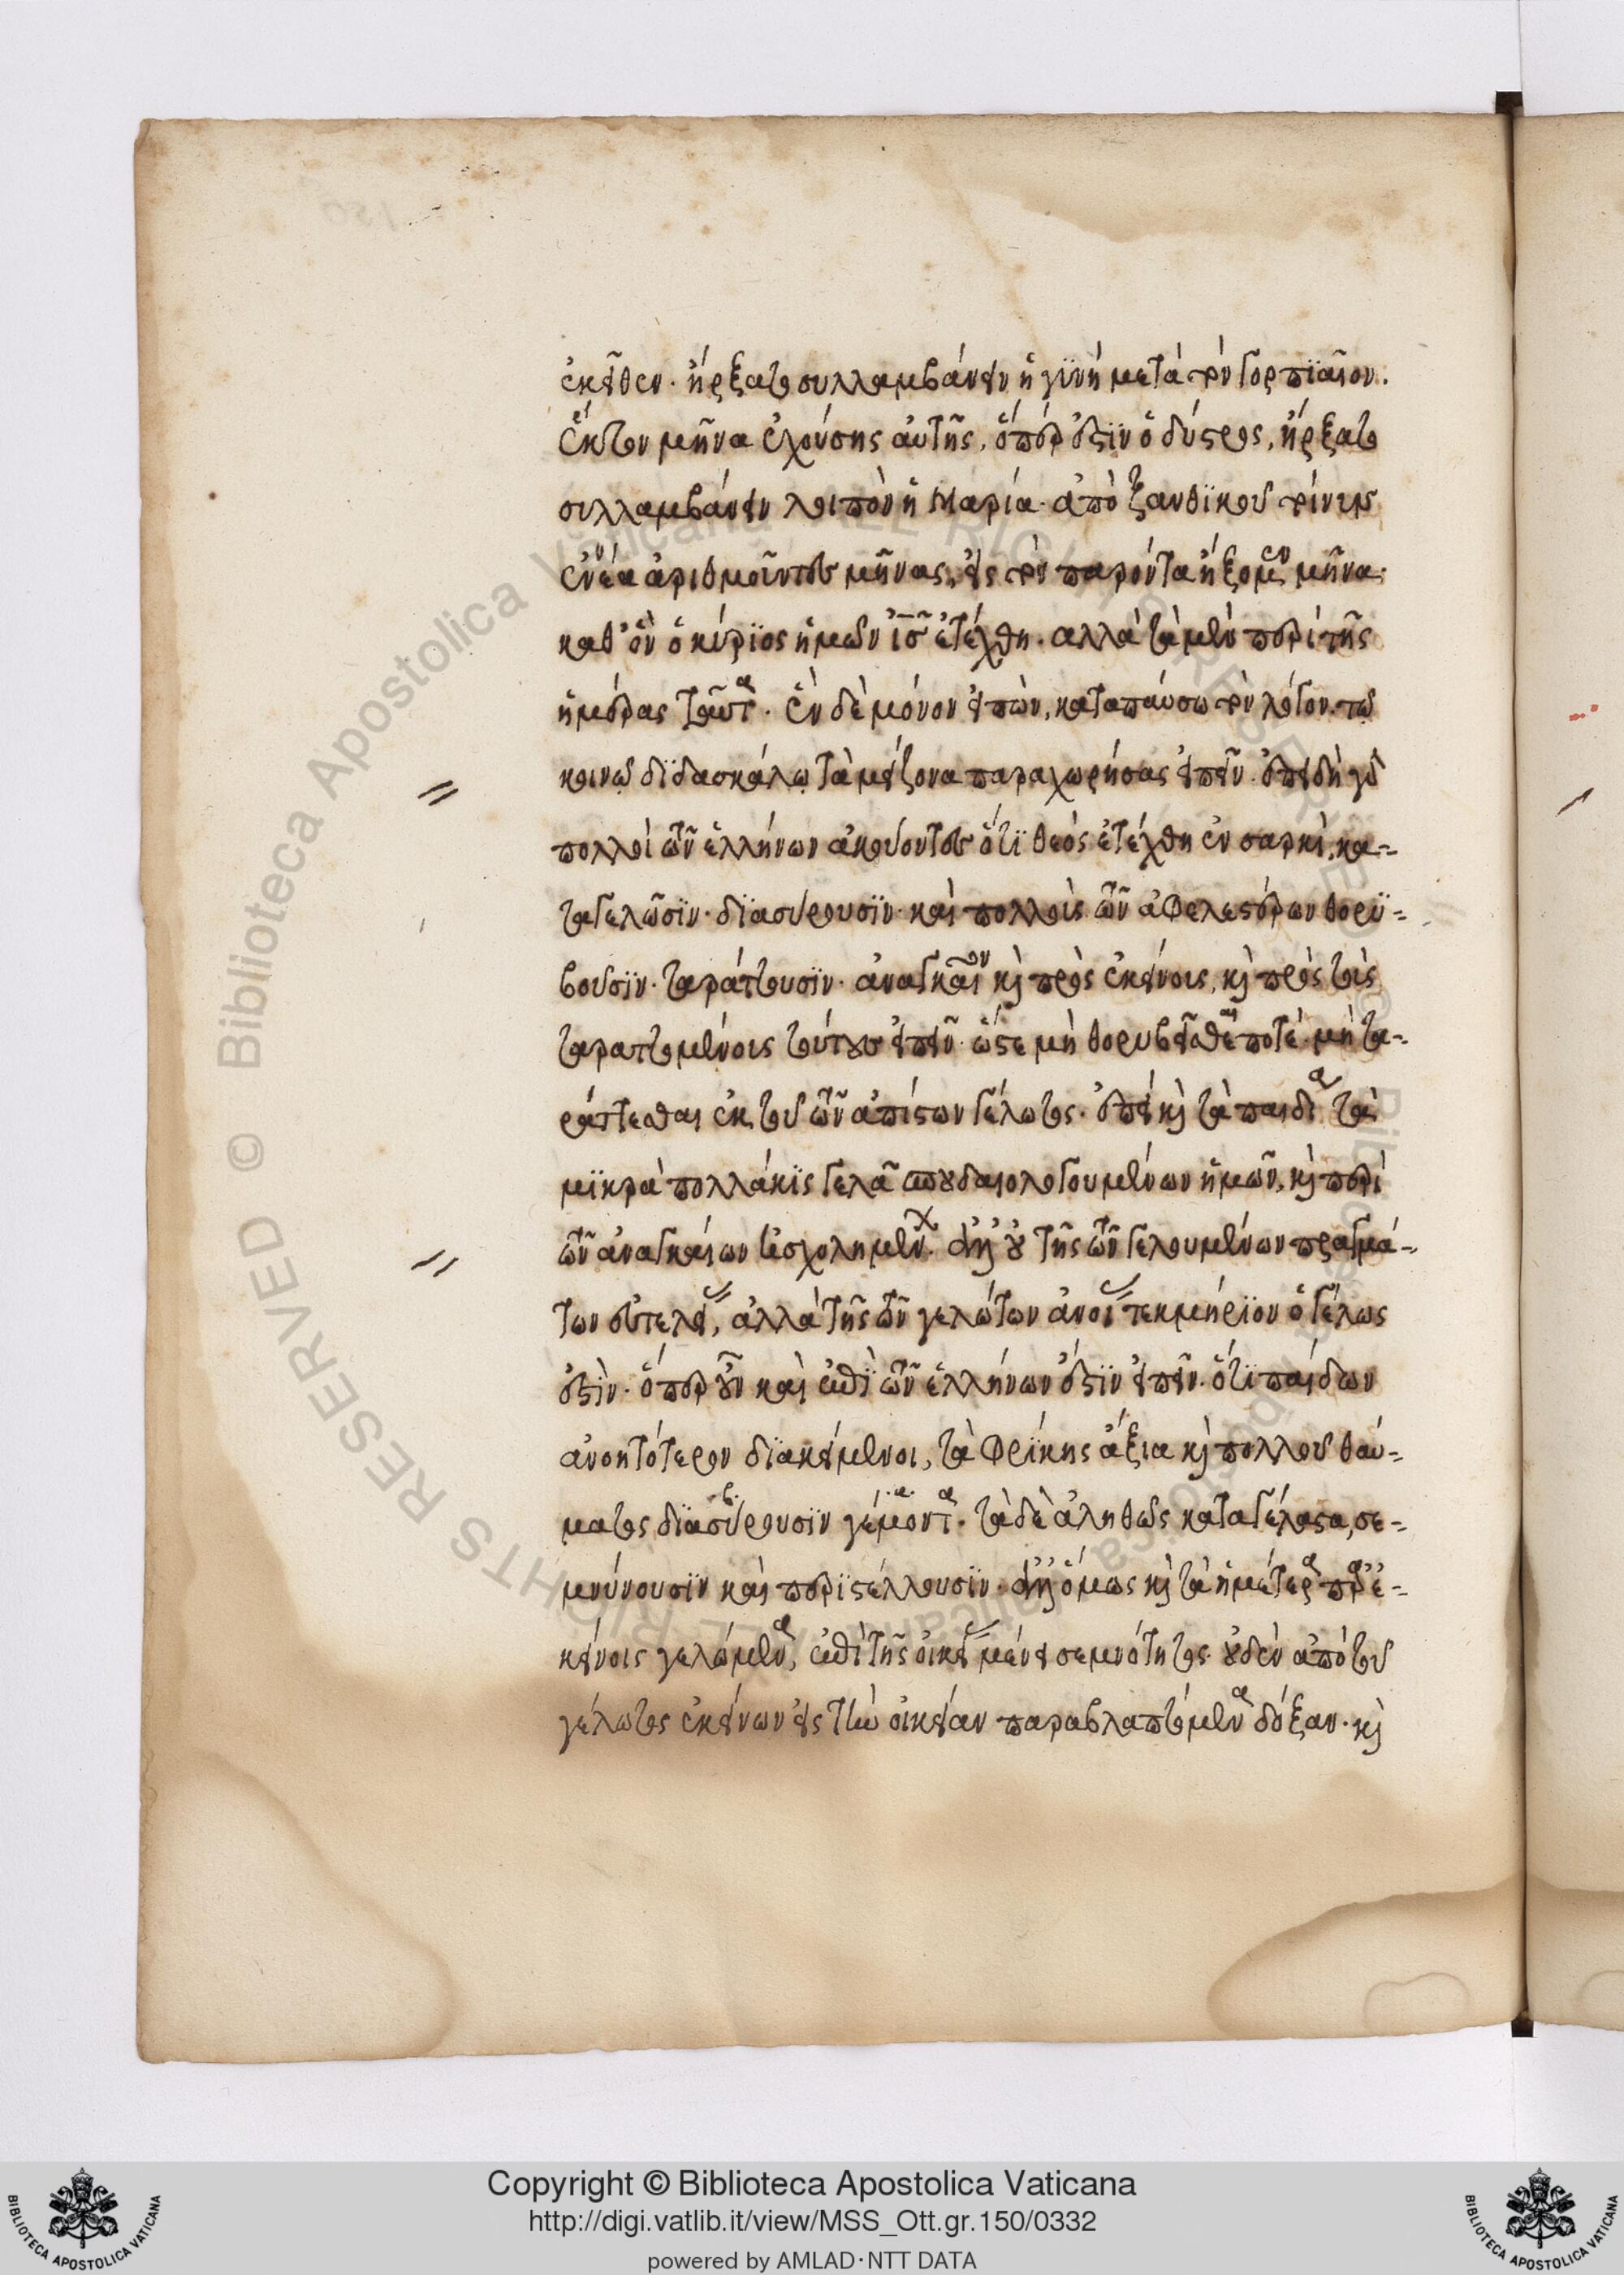 ἐκεῖθεν· ἤρξατο συλλαμβάνειν ἡ γϋνὴ μετὰ τὸν γορπϊαῖον.
ἕκτον μῆνα ἐχούσης αὐτῆς, ὅπερ ἐστϊν ὁ δύστρος, ἤρξατο
συλλαμβάνειν λοιπὸν ἡ Μαρία· ἀπὸ ξανθϊκοῦ τοίνυν
ἐννέα ἀριθμοῦντες μῆνας, εἰς τὸν παρόντα ἥξομεν μῆνα·
καθ' ὃν ὁ κύρϊος ἡμῶν ἰς ἐτέχθη. αλλὰ τὰ μὲν περὶ τῆς
ἡμέρας ταῦτα. ἓν δὲ μόνον εἰπὼν, καταπαύσω τὸν λόγον. τῶ
κοινῷ δϊδασκάλῳ τὰ μείζονα παραχωρήσας εἰπεῖν. ἐπειδὴ γὰρ
πολλοὶ τῶν ἑλλήνων ἀκούοντες ὅτϊ θεὸς ἐτέχθη ἐν σαρκὶ, κα-
ταγελῶσϊν· δϊασύρουσϊν· καὶ πολλοὺς τῶν ἀφελεστέρων θορϋ-
βοῦσϊν· ταράττουσϊν· ἀναγκαῖον κὶ πρὸς ἐκείνοις, κὶ πρὸς τοὺς
ταραττομένοις τούτους εἰπεῖν· ὥστε μὴ θορυβεῖσθαί ποτέ· μὴ τα-
ράττεσθαι ἐκ τοῦ τῶν ἀπίστων γέλωτος. ἐπεὶ κὶ τὰ παιδία τὰ
μϊκρὰ πολλάκϊς γελᾶ σπουδαιολογουμένων ἡμῶν, κὶ περὶ
τῶν ἀναγκαίων ἐσχολημένων. ἀλλ' οὐ τῆς τῶν γελουμένων πραγμά-
των εὐτελείας, ἀλλὰ τῆς τῶν γελώτων ἀνοίας τεκμήρϊον ὁ γέλως
ἐστὶν. ὅπερ οὖν καὶ ἐπὶ τῶν ἑλλήνων ἔστϊν εἰπεῖν. ὅτϊ παίδων
ἀνοητότερον δϊακείμενοι, τὰ φρίκης ἄξια κὶ πολλοῦ θαύ-
ματος δϊασύρουσϊν γέμοντα. τὰ δὲ ἀληθῶς καταγέλαστα, σε-
μνύνουσϊν καὶ περϊστέλλουσϊν. ἀλλ' ὅμως κὶ τὰ ἡμέτερα παρ' ἐ-
κείνοις γελώμενα, ἐπὶ τῆς οἰκείας μένει σεμνότητος. οὐδὲν ἀπὸ τοῦ
γέλωτος ἐκείνων εἰς τὴν οἰκείαν παραβλαπτόμενα δόξαν. κὶ
Copyright © Biblioteca Apostolica Vaticana
http://digi.vatlib.it/view/MSS_Ott.gr.150/0332
powered by AMLAD·NTT DATA